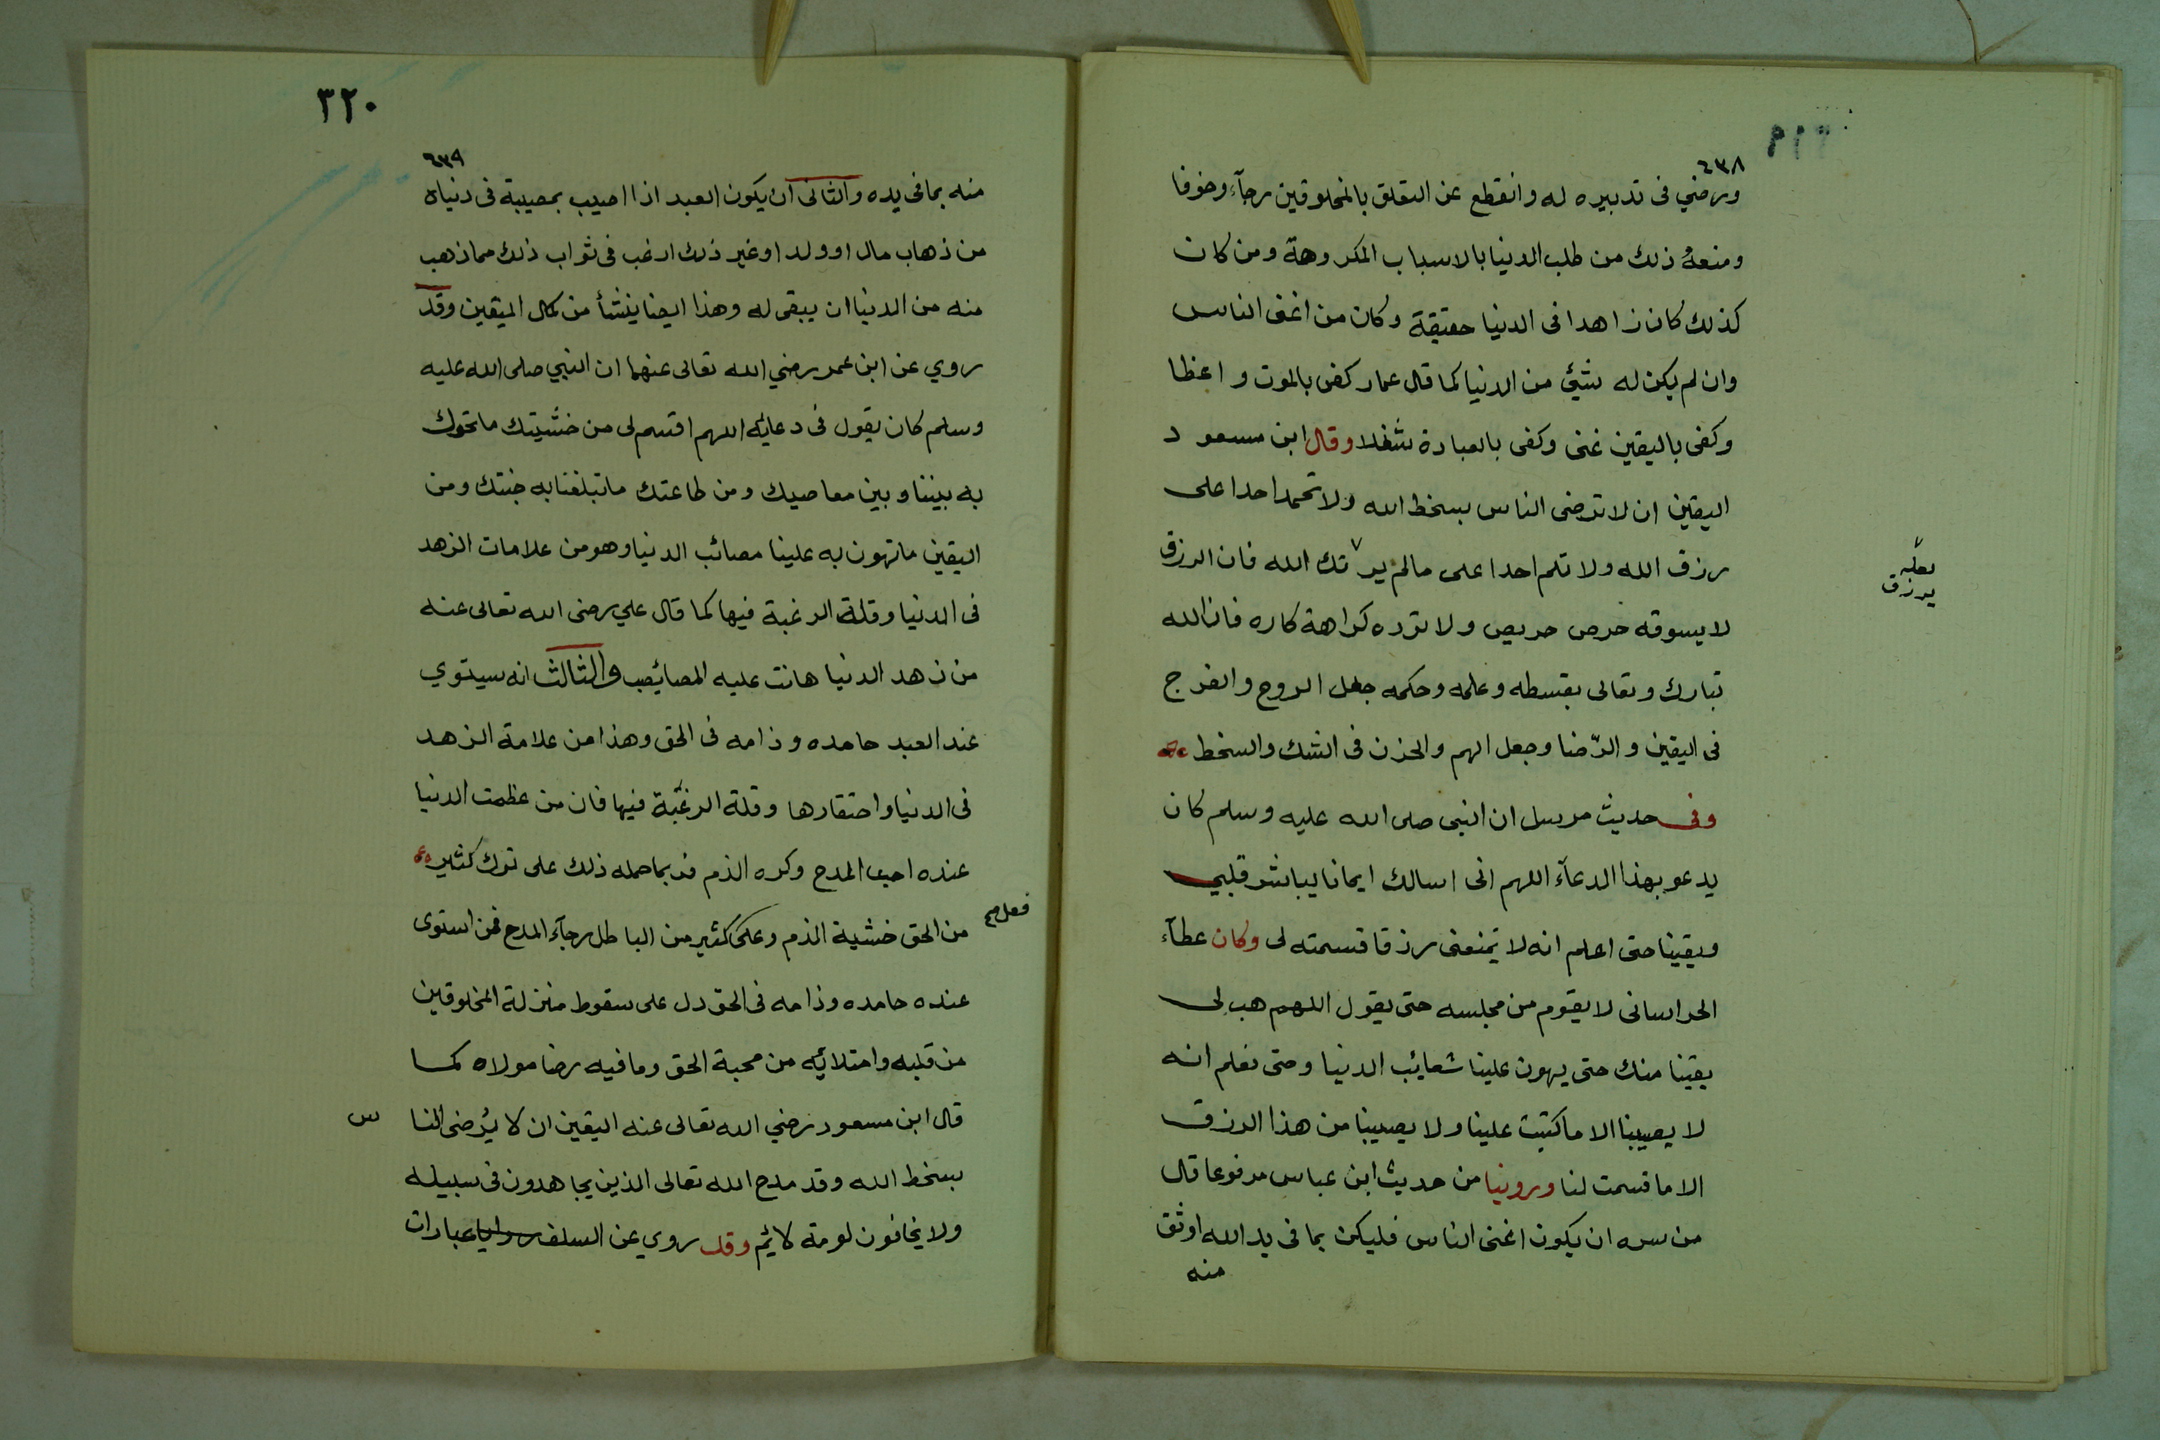 ٦٣٨
ورضي فى تدبيره له وانقطع عن التعلق بالمخلوقين رجآء وخوفا
ومنعهُ ذلك من طلب الدنيا بالاسباب المكروهة ومن كان
كذلك كان زاهدا فى الدنيا حقيقة وكان من اغنى الناس
وان لم يكن له شيئ من الدنيا كما قال عمار كفى بالموت واعظا
وكفى باليقين غنى وكفى بالعبادة شغلا وقال ابن مسعود
اليقين ان لا ترضى الناس بسخط الله ولا تحمد احدا على
رزق الله ولا تلم احدا على مالم يرتك الله فان الرزق
لعله
يرزق
لا يسوقه حرص حريص ولا ترده كراهة كاره فان الله
تبارك وتعالى بقسطه وعلمه وحكمه جعل الروح والفرج
فى اليقين والرّضا وجعل الهم والحزن فى الشك والسخط
وفى حديث مرسل ان النبى صلى الله عليه وسلم كان
يدعو بهذا الدعآء اللهم انى اسالك ايمانا يباشر قلبي
ويقينا حتى اعلم انه لا تمنعنى رزقا قسمته لى وكان عطآء
الخراسانى لا يقوم من مجلسه حتى يقول اللهم هب لى
يقينا منك حتى يهون علينا شعايئب الدنيا وحتى نعلم انه
لا يصيبنا الا ما كتبت علينا ولا يصيبنا من هذا الرزق
الا ما قسمت لنا وروينا من حديث ابن عباس مرفوعا قال
من سره ان يكون اغنى الناس فليكن بما فى يد الله اوثق
منه
٣٢٠
٦٣٩
منه بما فى يده والثانى ان يكون العبد اذا اصيب بمصيبة فى دنياه
من ذهاب مال او ولد او غير ذلك ارغب فى ثواب ذلك مما ذهب
منه من الدنيا ان يبقى له وهذا ايضا ينشأ من كمال اليقين وقد
روي عن ابن عمر رضي الله تعالى عنهما ان النبي صلى الله عليه
وسلم كان يقول فى دعائه اللهم اقسم لى من خشيتك ما تحول
به بيننا وبين معاصيك ومن طاعتك ما تبلغنا به جنتك ومن
اليقين ما تهون به علينا مصائب الدنيا وهو من علامات الزهد
فى الدنيا وقلة الرغبة فيها كما قال علي رضى الله تعالى عنه
من زهد الدنيا هانت عليه المصائب والثالث انه سيتوي
عند العبد حامده وذامه فى الحق وهذا من علامة الزهد
فى الدنيا واحتقارها وقلة الرغبة فيها فان من عظمت الدنيا
عنده احب المدح وكره الذم فربما حمله ذلك على ترك كثير
من الحق خشية الذم وعلى كثير من الباطل رجآء المدح فمن استوى
فعل صح
عنده حامده وذامه فى الحق دل على سقوط منزلة المخلوقين
من قلبه وامتلائه من محبة الحق وما فيه رضا مولاه كما
قال ابن مسعود رضي الله تعالى عنه اليقين ان لا يُرضى النا
س
بسخط الله وقد مدح الله تعالى الذين يجاهدون فى سبيله
ولا يخافون لومة لائم وقد روي عن السلف روايا عبارات